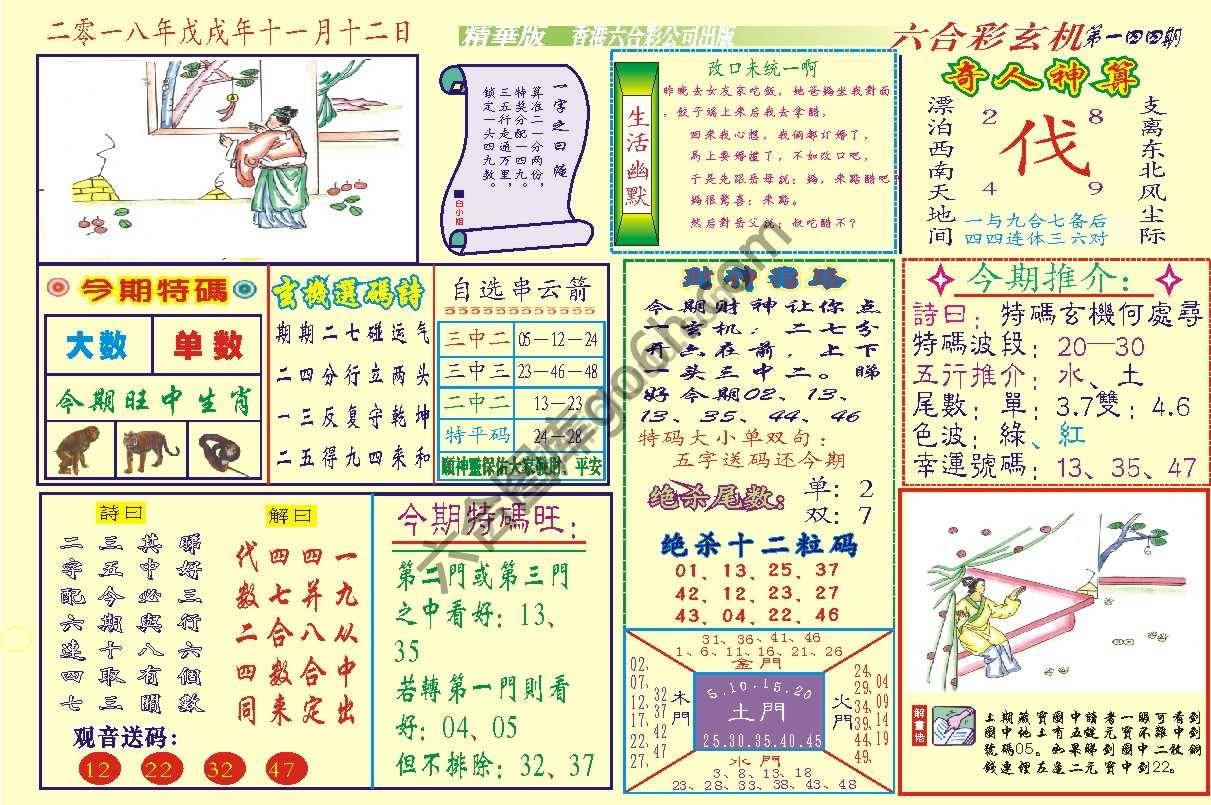 二零一八年戊戌年十一月十二日
精華版 香港六合彩公司出版
六合彩玄机第一四四期
一字之曰随
算准二一分两份，
特奖分配一四九。
三五行走通万里，
锁定一头四九数。
白小姐
生活幽默
改口未统一啊
昨晚去女友家吃饭，她爸妈坐我對面
，饺子端上来后我去拿醋，
回来我心想，我俩都订婚了，
馬上要婚禮了，不如改口吧，
于是先跟岳母説：媽，来點醋吧？
媽很驚喜：来點。
然后對岳父説：叔吃醋不？
奇人神算
漂泊西南天地间
2 8
伐
4 9
支离东北风尘际
一与九合七备后
四四连体三六对
今期特碼
大数 单数
今期旺中生肖
玄機選碼詩
期期二七碰运气
二四分行立两头
一三反复守乾坤
二五得九四来和
自选串云箭
三中二 05—12—24
三中三 23—46—48
二中二 13—23
特平码 24—28
願神靈保佑大家發財、平安
财神指路
今期财神让你点
一玄机，二七分
开六在前，上下
一头三中二。睇
好今期02、13、
13、35、44、46
特码大小单双句：
五字送码还今期
绝杀尾数： 单：2
双：7
绝杀十二粒码
01、13、25、37
42、12、23、27
43、04、22、46
今期推介：
詩曰：特碼玄機何處尋
特碼波段：20—30
五行推介：水、土
尾數：單：3.7雙：4.6
色波：綠、紅
幸運號碼：13、35、47
詩曰
睇好三行六個數
其中必與八有關
三五今期十取三
二字配六連四七
解曰
一九从中出
四并八合定
四七合数来
代数二四同
观音送码：
12 22 32 47
今期特碼旺：
第二門或第三門
之中看好：13、
35
若轉第一門則看
好：04、05
但不排除：32、37
31、36、41、46
1、6、11、16、21、26
金門
02、07、12、17、22、27、
32、37、42、47
木門
5.10.15.20
土門
25.30.35.40.45
火門
24、29、34、39、44、49、
04、09、14、19
水門
3、8、13、18
23、28、33、38、43、48
解畫悟
上期藏寶圖中讀者一睇可看到
圖中地上有五錠元寶不難中到
號碼05。如果睇到圖中二枚銅
錢連裡左邊二元寶中到22。
六合图库go6h.com